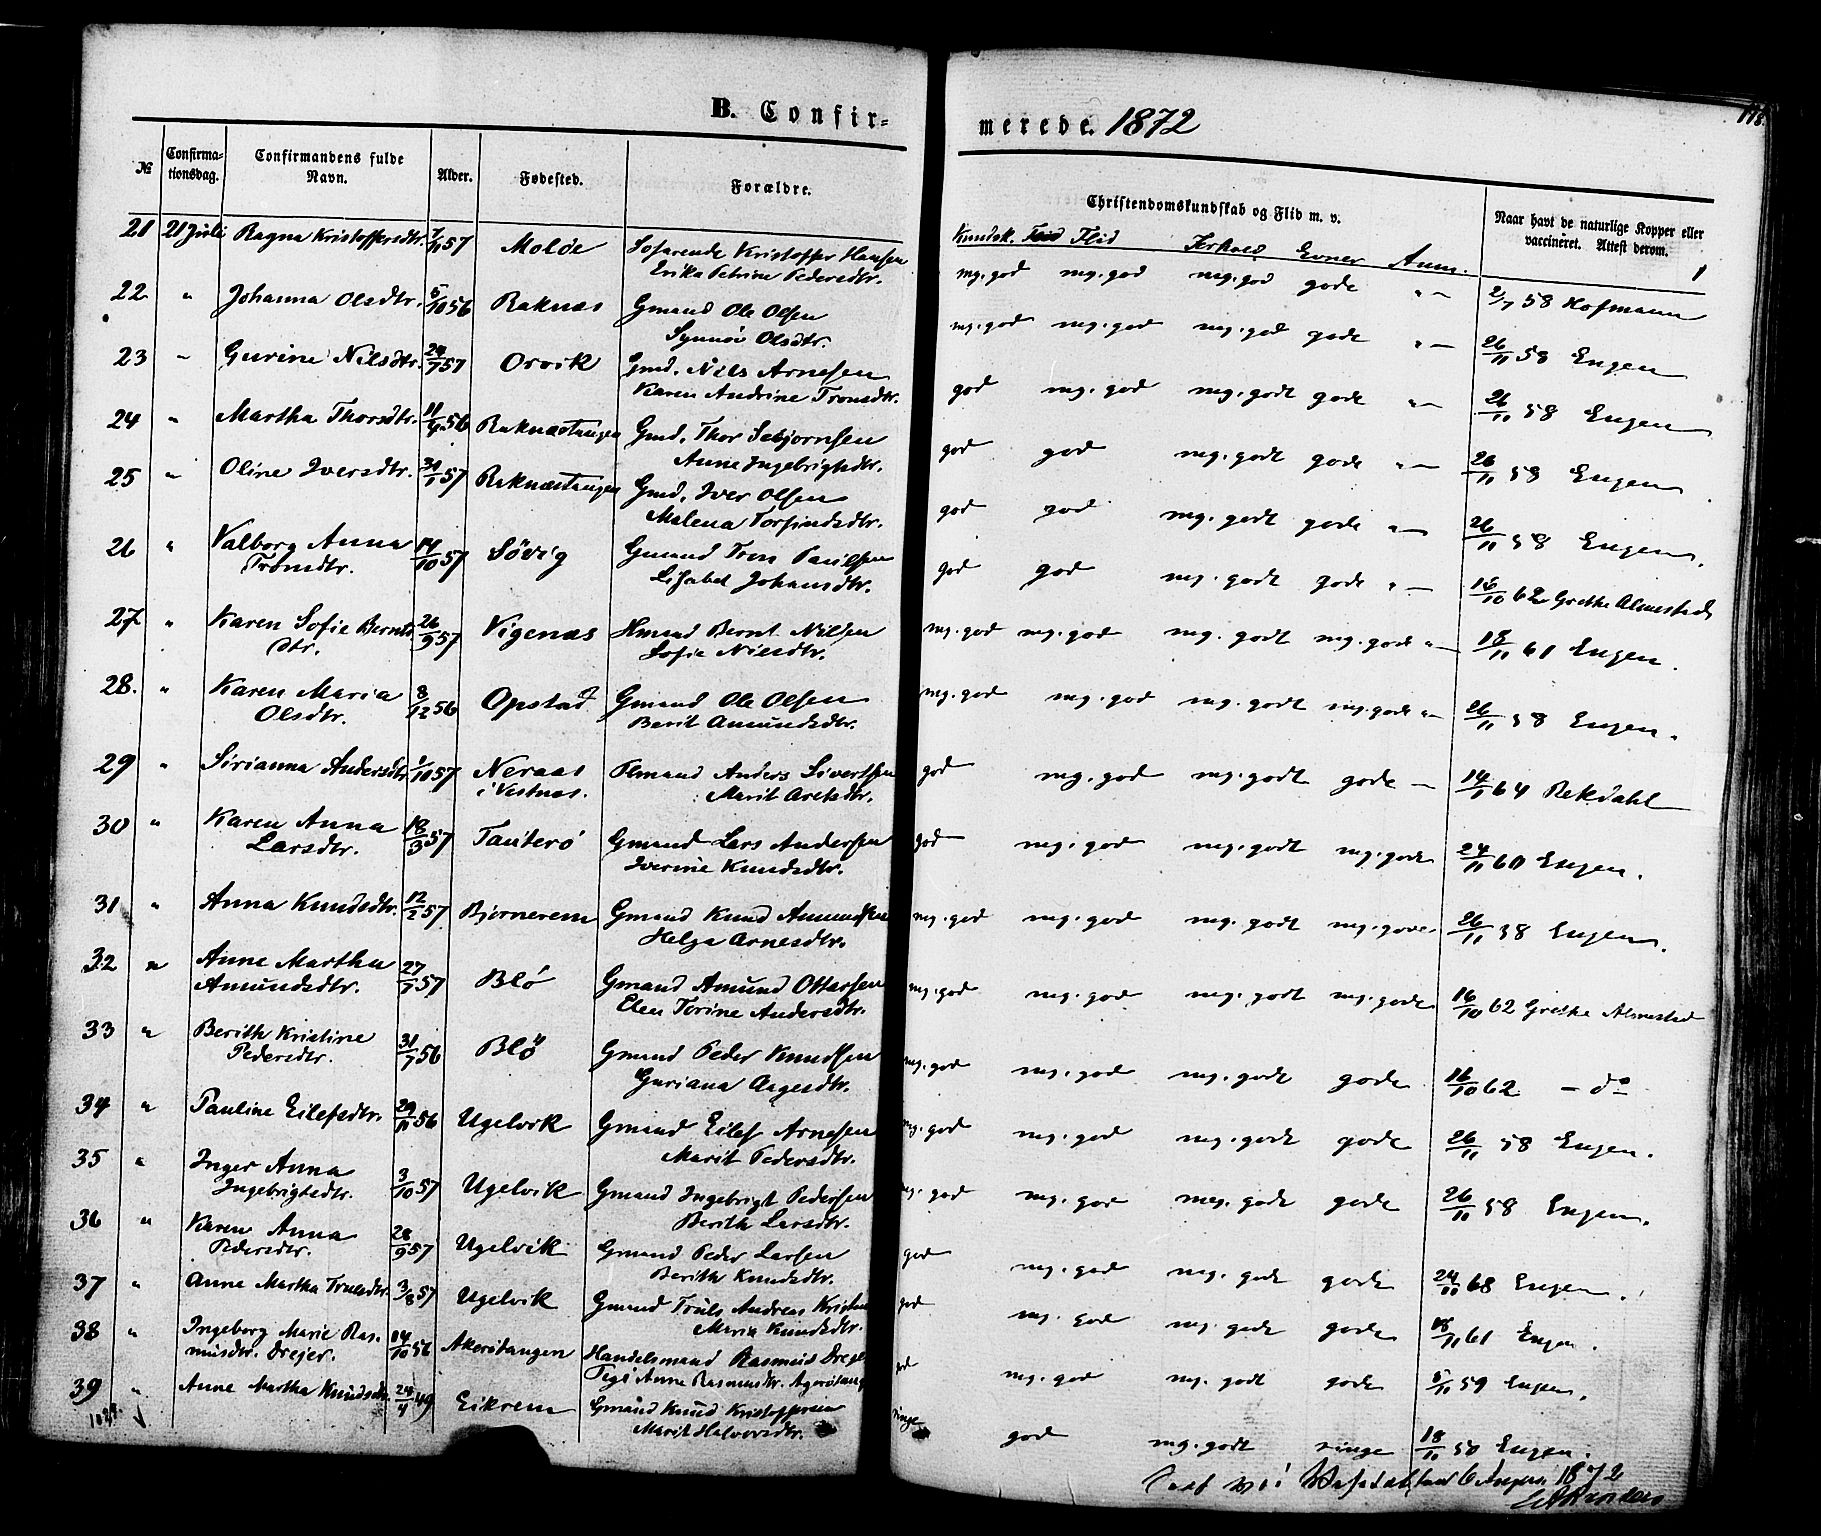 B. Confir-
merede. 1872
№ Confirma-tionsdag. Confirmandens fulde Navn. Alder. Fødested. Forældre.
Christendomskundskab og Flid m. v. Naar havt de naturlige Kopper eller vaccineret. Attest derom.
Kundsk. Flid Evner Anm.
21 21 Juli Ragna Kristoffersdtr. 57 Molde Sofarende Kristoffer Hansen
Erika Petrine Pedersdtr.
mg. god mg. god meg. god gode " — 2/7 58 Hofmann
22 " Johanna Olsdtr. 5/10 56 Raknæs Gmand Ole Olsen
Synnøi Olsdtr.
mg. god mg. god mg. god gode " — 26/11 58 Engen
23 " Gurine Nilsdtr. 57 Orvik Gmd. Nils Arnesen
Karen Andrine Tronsdtr.
god mg. god mg. godt gode " — 26/11 58 Engen
24 " Martha Thorsdtr. 56 Raknæstangen Gmd. Thor Sebjørnsen
Anne Ingebrigtsdtr.
god god mg. godt gode " — 26/11 58 Engen
25 " Oline Iversdtr. 57 Raknæstangen Gmd. Iver Olsen
Malena Torfindsdtr.
god god mg. godt gode " — 26/11 58 Engen.
26 " Valborg Anna
Tronsdtr. 14/10 57 Søvig Gmand Tron Paulsen
Lisabel Johansdtr.
god god mg. godt gode " — 16/10 62 Grethe Almestad
27 " Karen Sofie Bernts
dtr. 26/9 57 Vigenæs Hmand Bernt Nilsen
Sofie Nilsdtr.
mg. god mg. god mg. godt mg. gode " — 18/11 61 Engen.
28. " Karen Maria
Olsdtr. 8/12 56 Opstad Gmand Ole Olsen
Berit Amundsdtr.
mg. god mg. god mg. godt mg. gode " — 26/11 58 Engen.
29 " Sirianna Andersdtr. 1/10 57 Neraas
i Vestnæs. Anders Sivertsen
Marit Aretsdtr.
god mg. god mg. godt gode — 64 Rekdahl
30 " Karen Anna
Larsdtr. 57 Tauterø Gmand Lars Andersen
Iverine Knudsdtr.
god mg. god mg. godt mg. gode 24/11 60 Engen.
31 " Anna Knudsdtr. 12/2 57 Bjørnerem Gmand Knud Amundsen
Helga Arnesdtr.
mg. god mg. god mg. godt mg. gode 26/11 58 Engen.
32 " Anne Martha
Amundsdtr. 57 Blø Gmand Amund Ottarsen
Elen Torine Andersdtr.
mg. god mg. god mg. godt mg. gode 16/10 62 Grethe Almestad
33 " Berith Kristine
Pedersdtr. 31/7 56 Blø Gmand Peder Knudsen
Guriana Aagesdtr.
mg. god mg. god mg. gode gode 16/10 62 — do
34 " Pauline Eilefsdtr. 29/11 56 Ugelvik Gmand Eilef Arnesen
Marit Pedersdtr.
mg. god mg. god mg. gode gode 26/11 58 Engen.
35 " Inger Anna
Ingebrigtsdtr. 3/10 57 Ugelvik Gmand Ingebrigt Pedersen
Berith Larsdtr.
mg. god mg. god meg. gode gode 26/11 58 Engen.
36 " Karen Anna
Pedersdtr. 28/9 57 Ugelvik Gmand Peder Larsen
Berith Knudsdtr.
god mg. god mg. gode gode 24/11 68 Engen.
37 " Anne Martha Trulsdtr 3/8 57 Ugelvik Gmand Truls Andreas Kristen
Maria Knudsdtr.
god mg. god mg. gode gode 18/11 61 Engen.
38 " Ingeborg Marie Ras-
musdtr. Drejer. 14/10 56 Akerstangen Handelsmand Rasmus Drejer
Pige Anne Rasmusdtr.
god mg. god mg. godt gode 5/11 59 Engen.
39 " Anne Martha Knudsdtr 24/4 49 Eikrem Gmand Knud Kristoffersen
Marit Halvorsdtr.
ringe god mg. godt ringe 18/11 50 Engen.
1872